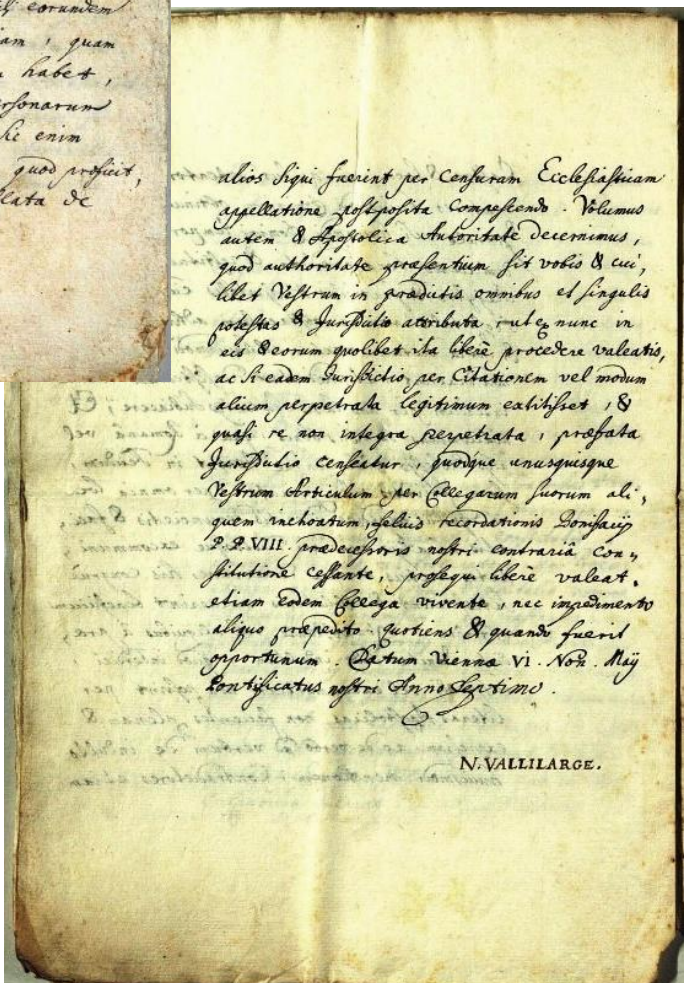 eorundem
quam
habet,
personarum
Sic enim
quod proficit,
de
alios siqui fuerint per censuram Ecclesiasticam
appellatione postposita compescendo. Volumus
autem & Apostolica Autoritate decernimus,
quod authoritate præsentium sit vobis & cui,
libet Vestrum in prædictis omnibus et singulis
potestas & Jurisdictio attributa ut ex nunc in
eis & eorum quolibet ita liberè procedere valeatis,
ac si eadem Jurisdictio per Citationem vel modum
alium perpetrata legitimum extitisset, &
quasi re non integra perpetrata, præfata
Jurisdictio censeatur, quodque unusquisque
Vestrum Articulum per Collegarum suorum ali,
quem inchoatum, felicis recordationis Bonifacij
P. P. VIII. prædecessoris nostri contrariâ con„
stitutione cessante, prosequi liberè valeat.
etiam eodem Collega vivente, nec impedimento
aliquo præpedito quotiens & quando fuerit
opportunum. Datum Viennæ VI. Non. Maÿ
Pontificatus nostri Anno Septimo.
N. VALLILARGE.